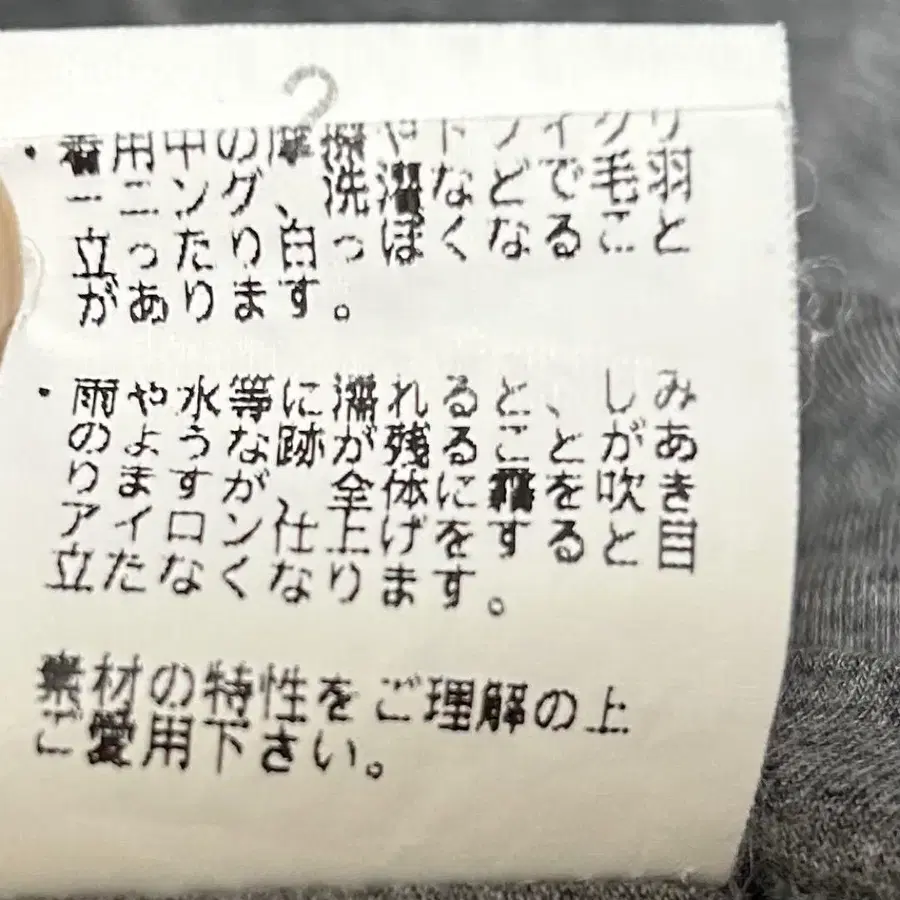 2
・着用中の摩擦やドライクリ
ーニング、洗濯などで毛羽
立ったり白っぽくなること
があります。
・雨や水等に濡れると、しみ
のような跡が残ることがあ
りますが、全体に霧を吹き
アイロン仕上げをすると目
立たなくなります。
素材の特性をご理解の上
ご愛用下さい。